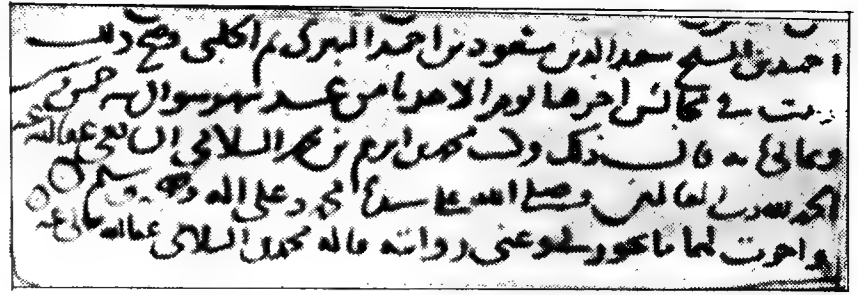 احمد بن الشيخ سعد الدين مسعود بن احمد البيركي ثم الحلبي وصح ذلك
في مجالس اخرها يوم الاحد ثامن عشر شهر شوال سنة خمس
قال ذلك وكتب محمد بن ابرهيم بن محمد السلامي الشافعي عفا الله عنه
الحمد لله رب العالمين وصلى الله على سيدنا محمد وعلى اله وصحبه وسلم
واجزت لهما ما يجوز لي وعني روايته قاله محمد السلامي عفا الله تعالى عنه